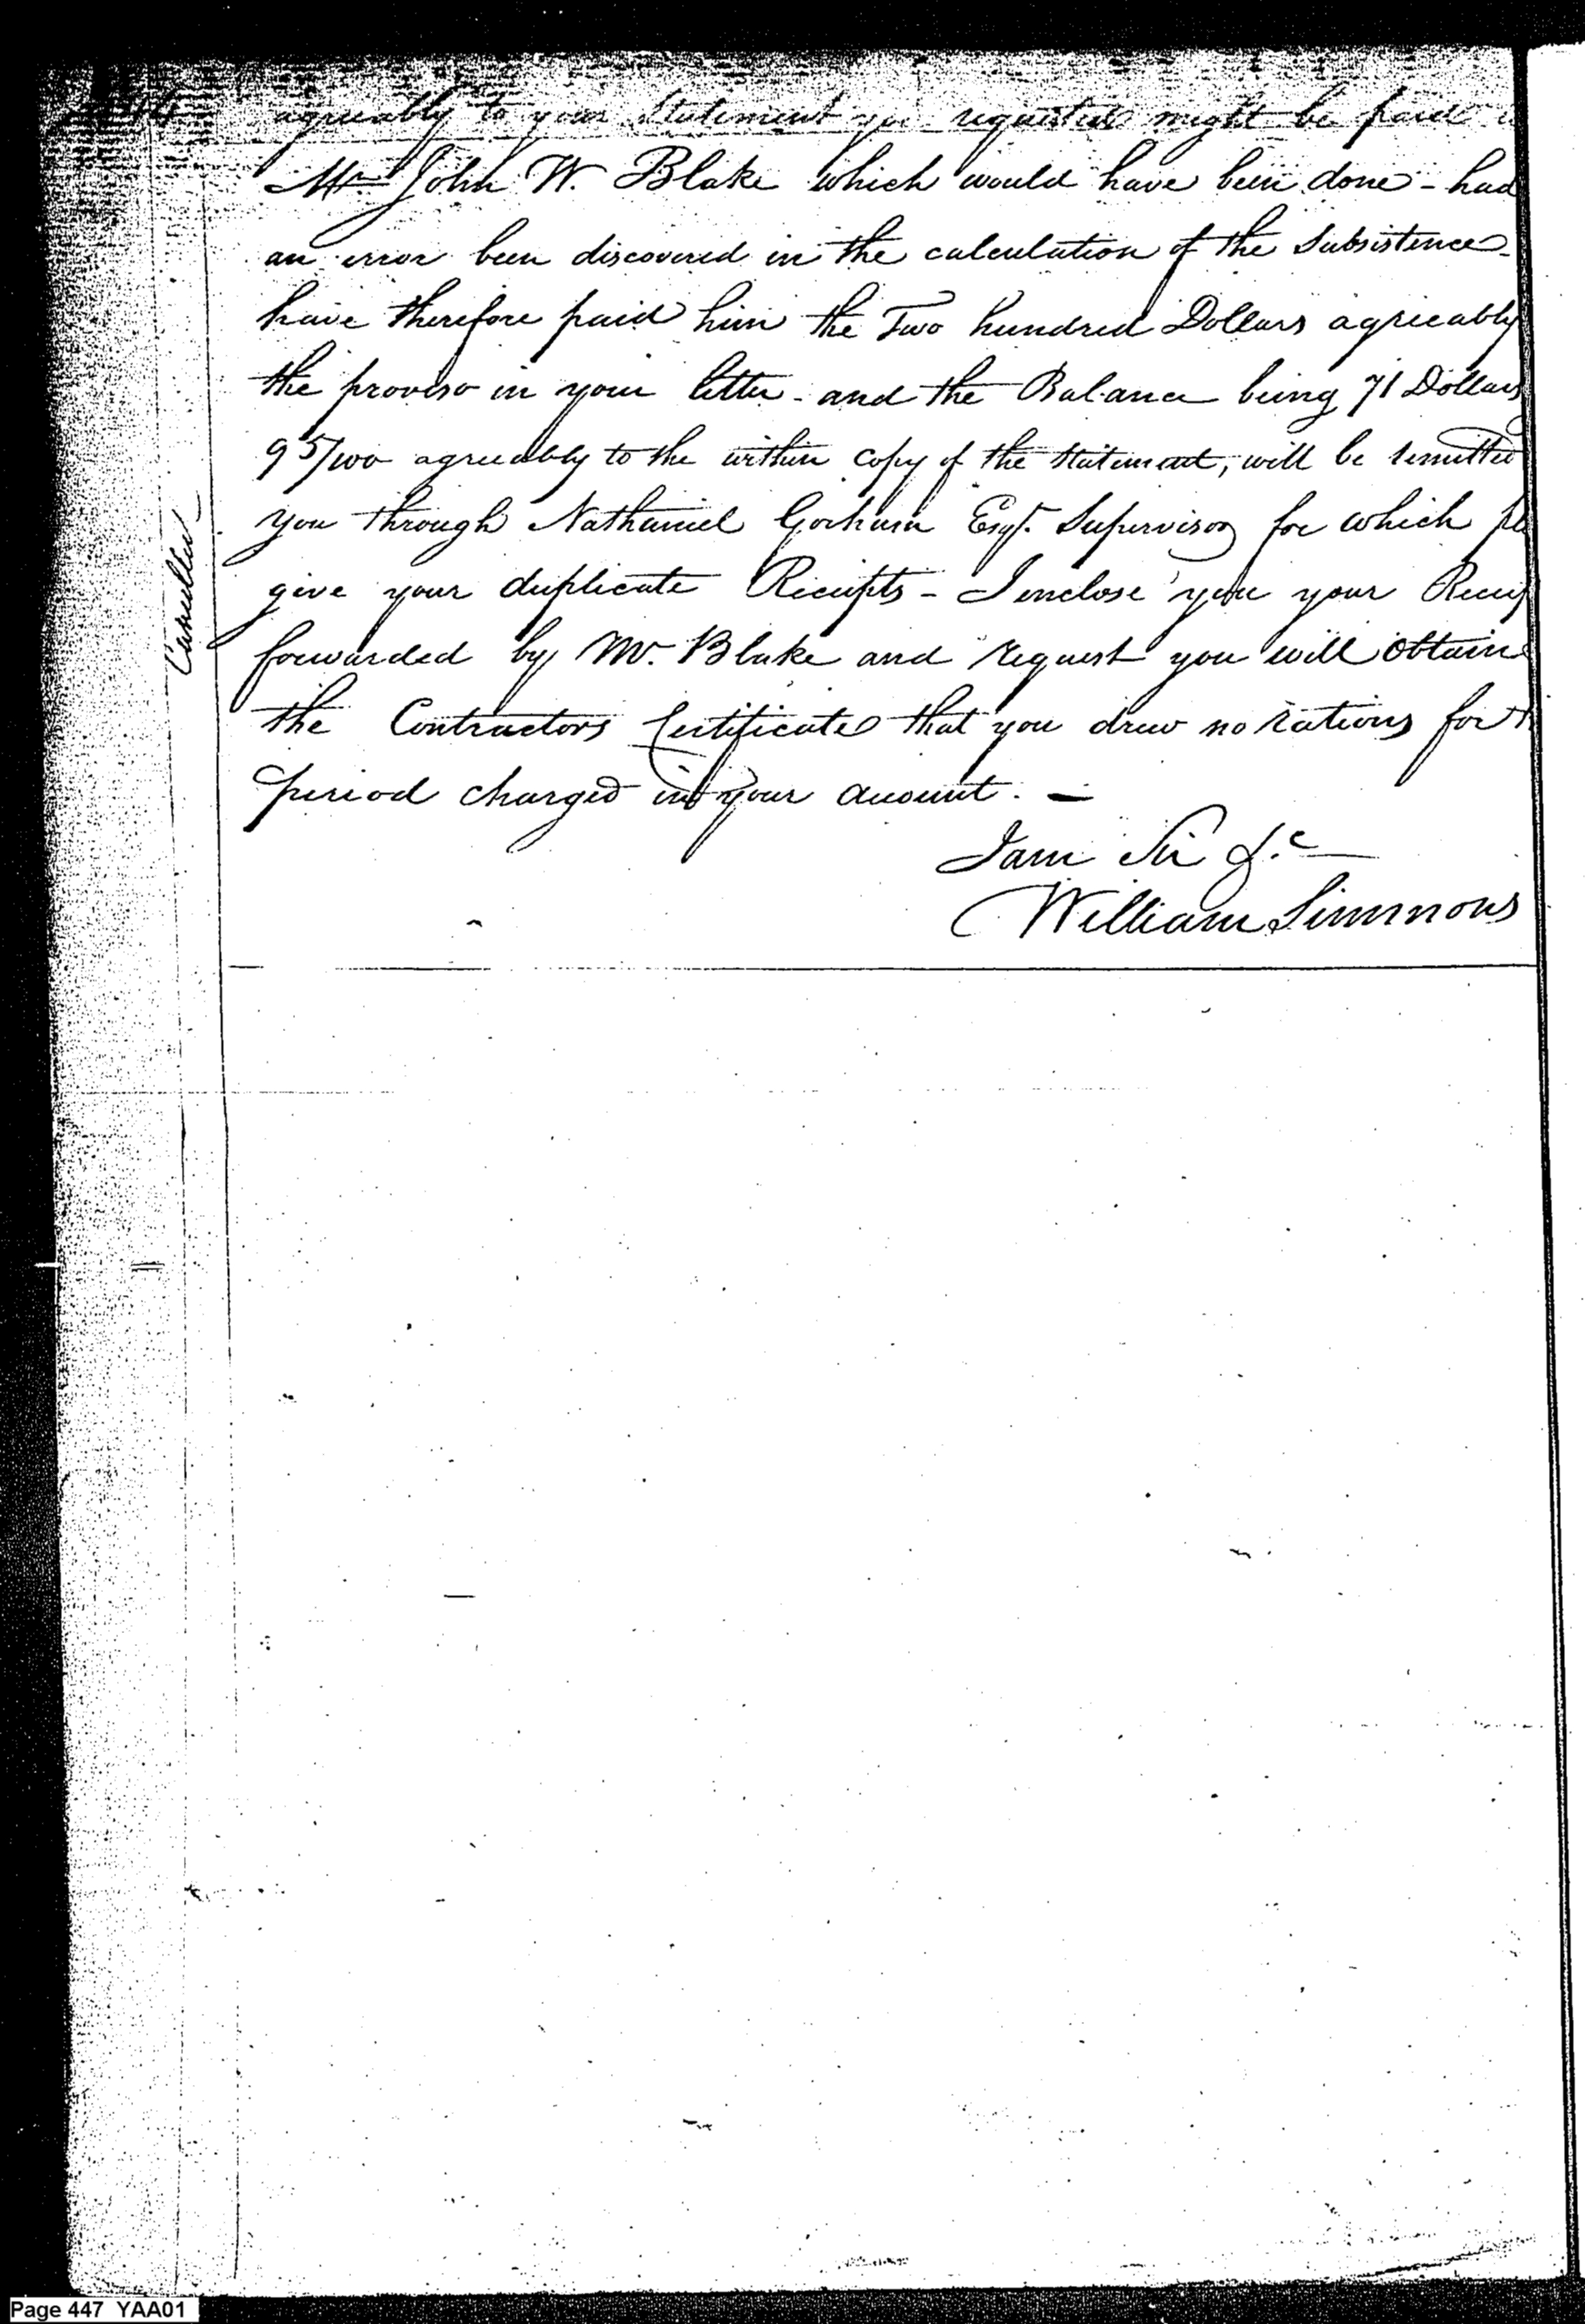 agreeably to your Statement you requested might be paid
Mr. John W. Blake which would have been done - had
an error been discovered in the calculation of the Subsistence -
have therefore paid him the Two hundred Dollars agreeably
the proviso in your letter - and the Balance being 71 Dollars
95/100 agreeably to the within copy of the statement, will be remitted
you through Nathaniel Gorham Esqr. Supervisor for which
give your duplicate Receipts - I enclose you your
forwarded by Mr. Blake and request you will obtain
the Contractors Certificate that you drew no rations for
period charged in your account. -
I am Sir &c
William Simmons
Cancelled
Page 447 YAA01